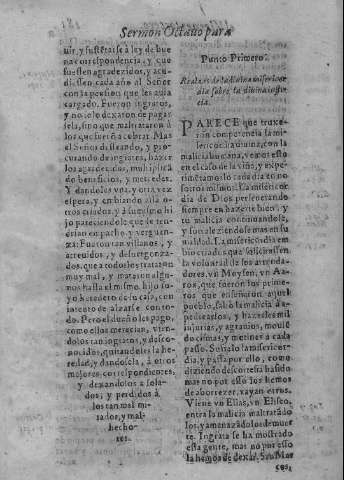 Sermon Octauo para
uir, y sustẽtarse a ley de buena
correspondencia, y que
fuessen agradezidos, y acudiessen
cada año al Señor
con la pension que les auia
cargado. Fueron ingratos,
y no solo dexaron de pagarsela,
sino que maltrataron à
los que fueron a cobrar. Mas
el Señor disseando, y procurando
de ingratos, hazerlos
agradecidos, multiplicò
beneficios, y mercedes.
Y dandoles vna, y otra vez
espera, y embiando allà otros
criados, y à su mismo hijo
pareciendole que le tendrian
empacho, y verguenza:
Fueron tan villanos, y
atreuidos, y desuergonzados,
que a todos los trataron
muy mal, y mataron algunos
hasta el mismo hijo suyo
heredero de su casa, con
intento de alzarse con todo.
Pero el dueño les pago,
como ellos merecian, viendolos
tan ingratos, y desconocidos,
quitandoles la heredad,
y dandosela, à otros
mejores correspondientes,
y dexandolos asolados,
y perdidos à
los tan mal mirados,
y malhechores.
Punto Primero.
Realzes de la diuina misericordia
sobre la diuina justicia.
PARECE que truxeron
competencia la misericordia
diuina, con la
malicia humana, vemos esto
en el caso de la viña, y experimẽtamoslo
cada dia en nosotros
mismos. La misericordia
de Dios perseuerando
siempre en hazerte bien: y
tu malicia continuandola,
y fortaleziendose mas en su
maldad. La misericordia embio
criados que solicitassen
la voluntad de los arrendadores.
vn Moysen, vn Aaron,
que fueron los primeros
que enseñaron aquel
pueblo, salio la malicia à apedrearlos,
y hazerles mil
injurias, y agrauios, mouiedo
cismas, y motines à cada
passo. Señalolo la misericordia,
y passa por ello, como
diziendo descortesia ha sido
mas no por esso los hemos
de aborrezer, vayan otros.
Viene vn Elias, vn Eliseo,
entra la malicia maltratadolos,
y amenazadolos de muerte.
Ingrata se ha mostrado
esta gente, mas no por esso
la hemos de dexar. Sus Mar